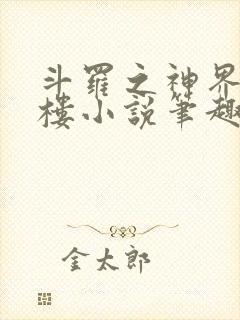 斗羅之神界
樓小說筆趣
金太郎